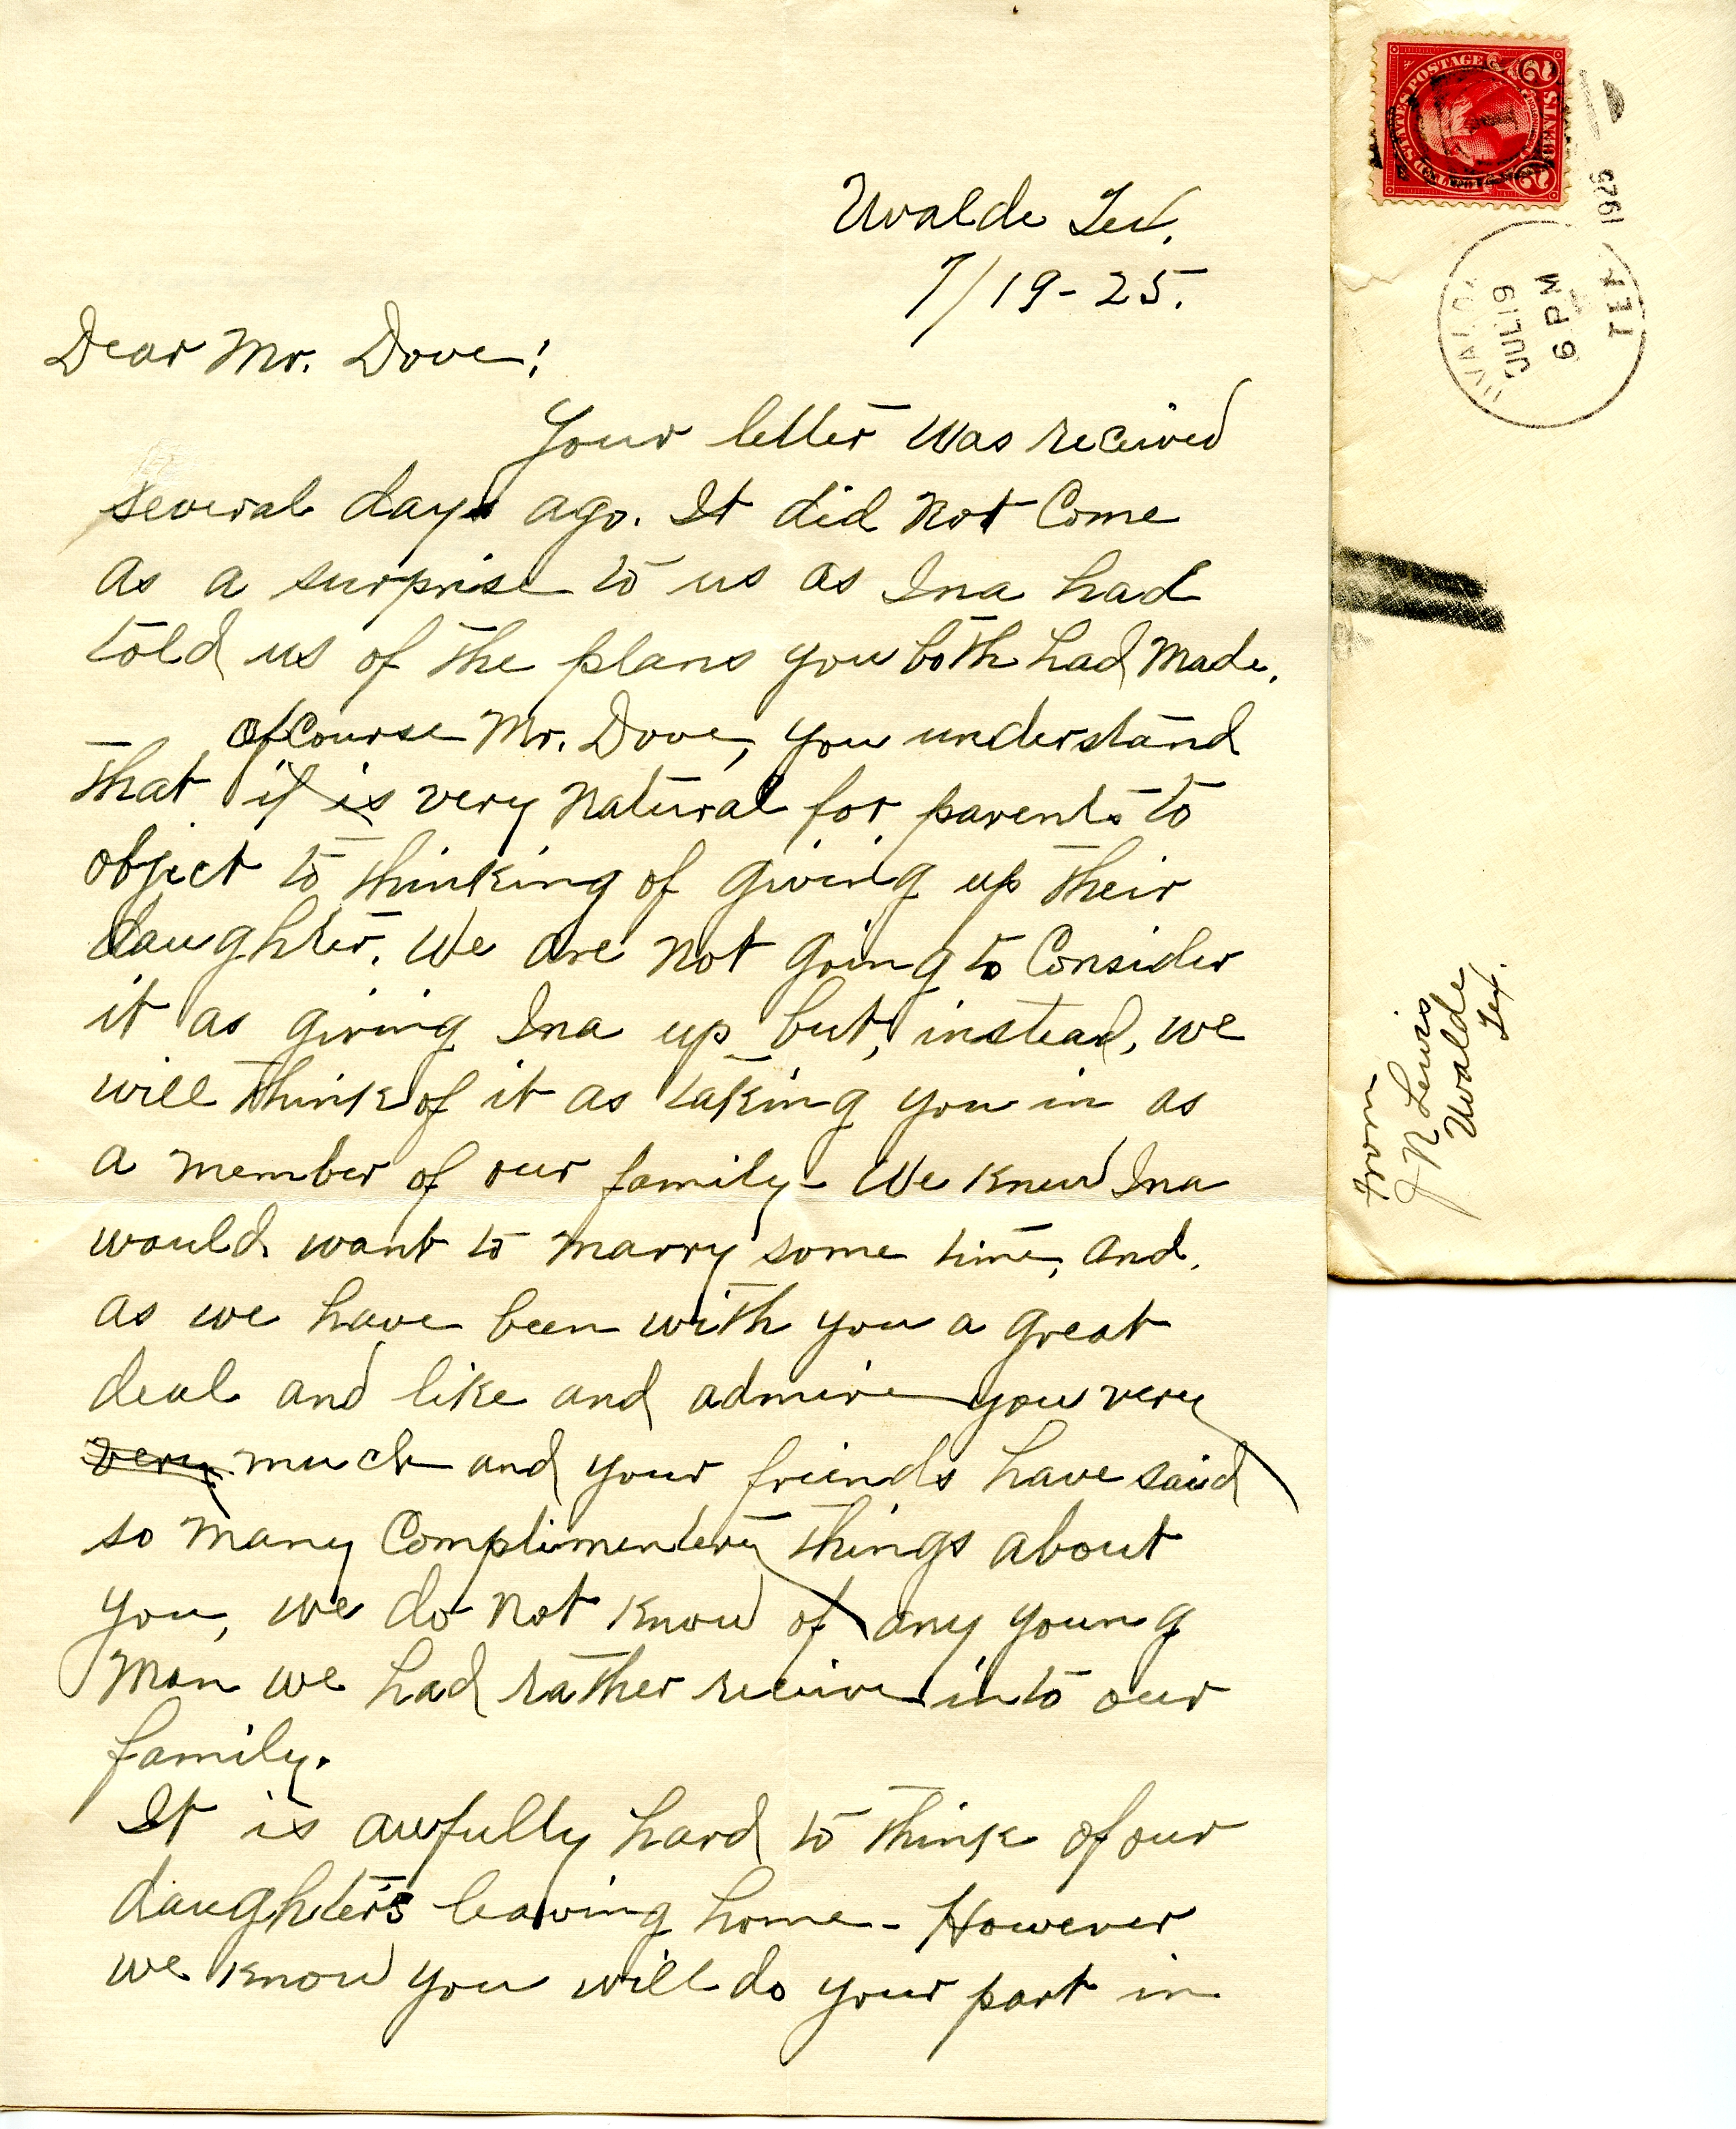 Uvalde Tex.
7/19-25.
Dear Mr. Dove:
Your letter was received
several days ago. It did not Come
as a surprise to us as Ina had
told us of the plans you both had made.
Of Course Mr. Dove, you understand
that it is very natural for parents to
object to thinking of giving up their
daughter. We are not going to Consider
it as giving Ina up but, instead, we
will think of it as taking you in as
a member of our family - We knew Ina
would want to marry some time, and,
as we have been with you a great
deal and like and admire you very
very much and your friends have said
so many Complimentery things about
you, we do not know of any young
man we had rather receive into our
family.
It is awfully hard to think of our
daughter's leaving home - However
we know you will do your part in
UNITED STATES POSTAGE
2 CENTS 2
1925
UVALDE
JUL 19
6 PM
TEX
From
J N Lewis
Uvalde
Tex.